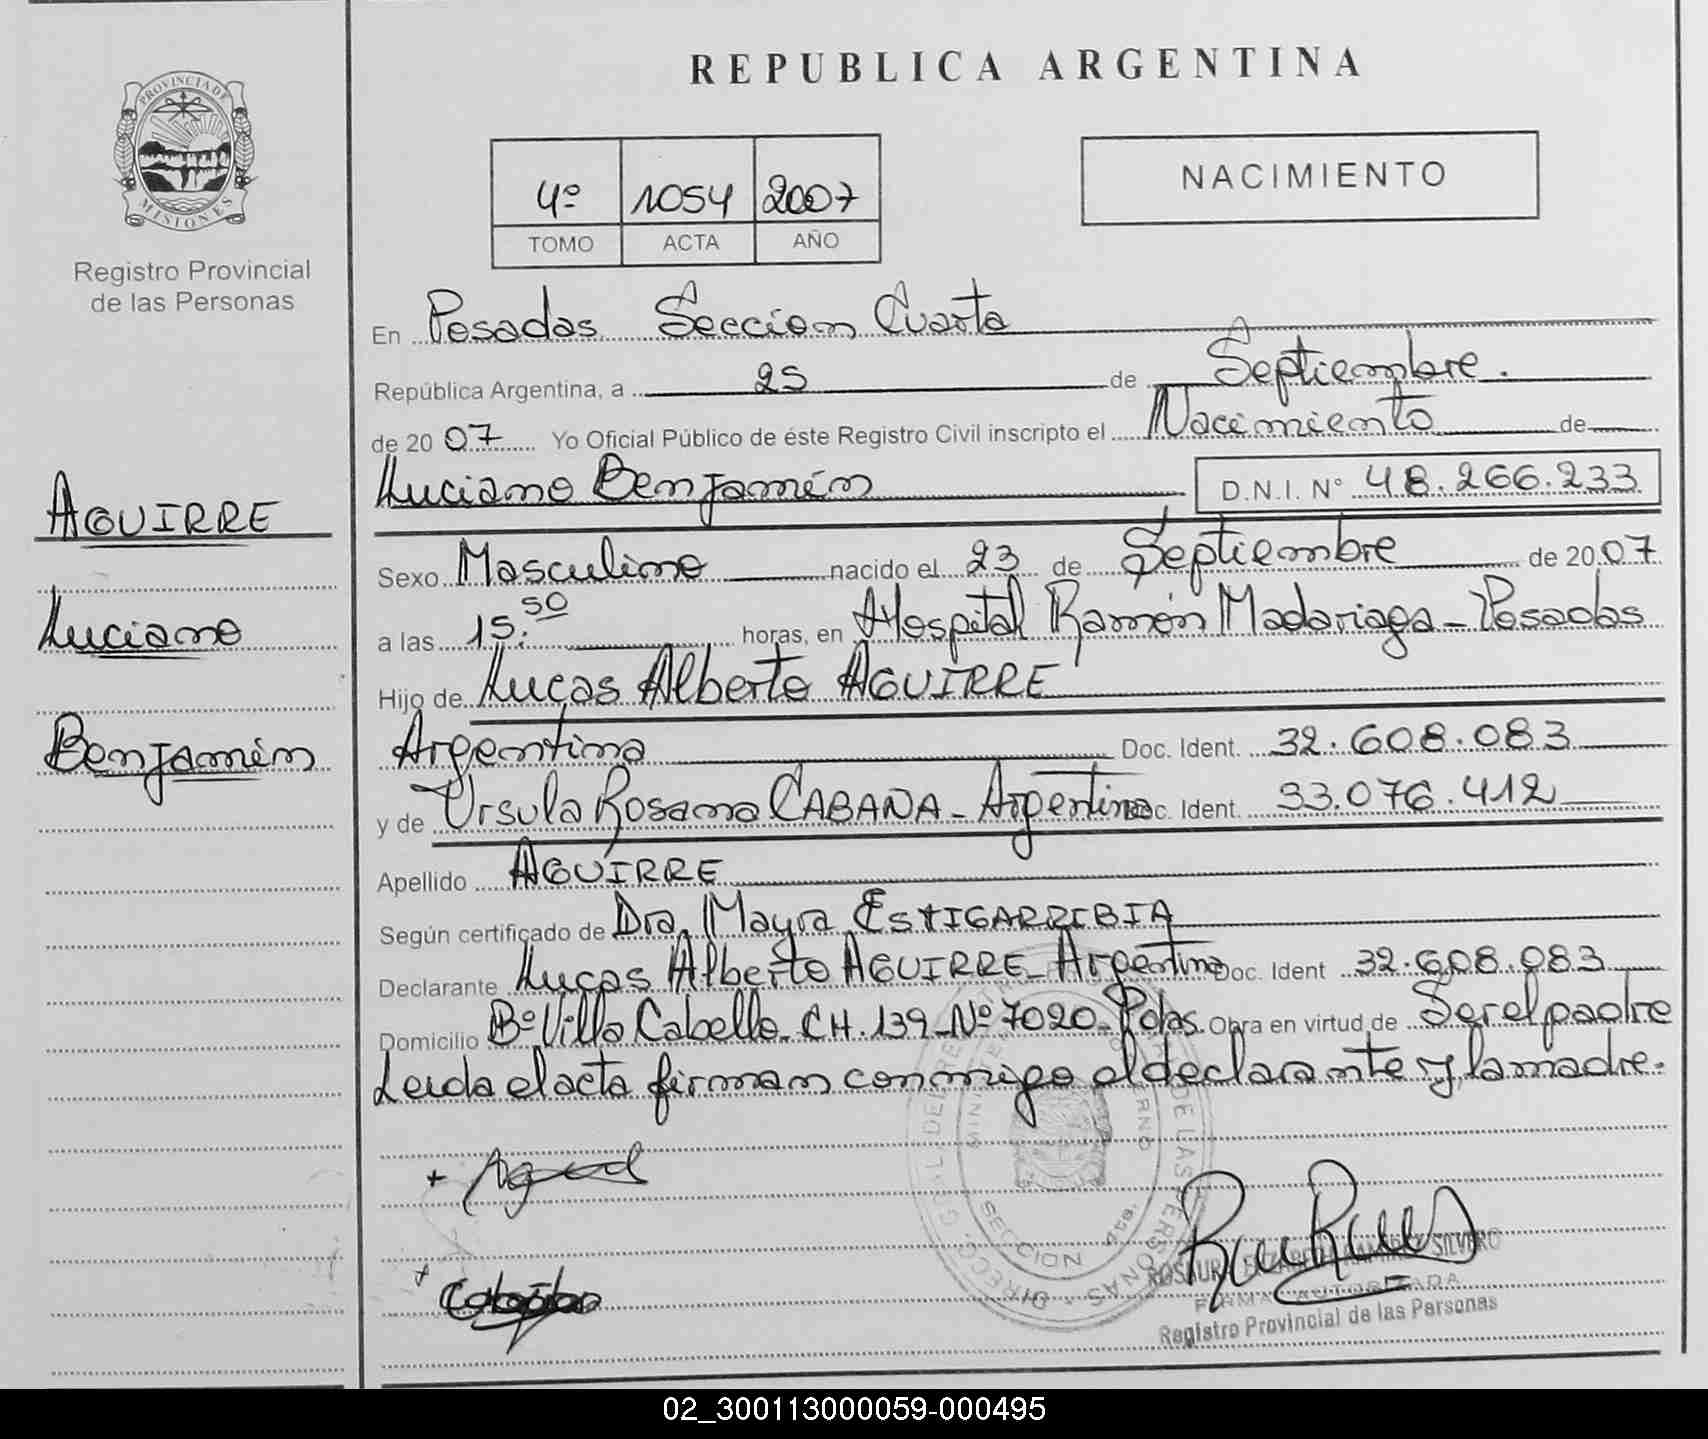 PROVINCIA DE
MISIONES
Registro Provincial
de las Personas
AGUIRRE
Luciano
Benjamín
REPUBLICA ARGENTINA
4º 1054 2007
TOMO ACTA AÑO
NACIMIENTO
En Posadas Seccion Cuarta
República Argentina, a 25 de Septiembre.
de 2007 Yo Oficial Público de éste Registro Civil inscripto el Nacimiento de
Luciano Benjamín D.N.I. Nº 48.266.233
Sexo Masculino nacido el 23 de Septiembre de 2007
a las 15:50 horas, en Hospital Ramón Madariaga - Posadas
Hijo de Lucas Alberto AGUIRRE
Argentino Doc. Ident. 32.608.083
y de Ursula Rosana CABAÑA - Argentina Doc. Ident. 33.076.412
Apellido AGUIRRE
Según certificado de Dra. Mayra ESTIGARRIBIA
Declarante Lucas Alberto AGUIRRE - Argentino Doc. Ident 32.608.083
Domicilio Bº Villa Cabello. CH. 139 - Nº 7020 - Pdas. Obra en virtud de Ser el padre
Leida el acta firman conmigo el declarante y la madre.
SECCION 4ta.
FIRMA AUTORIZADA
Registro Provincial de las Personas
02_300113000059-000495